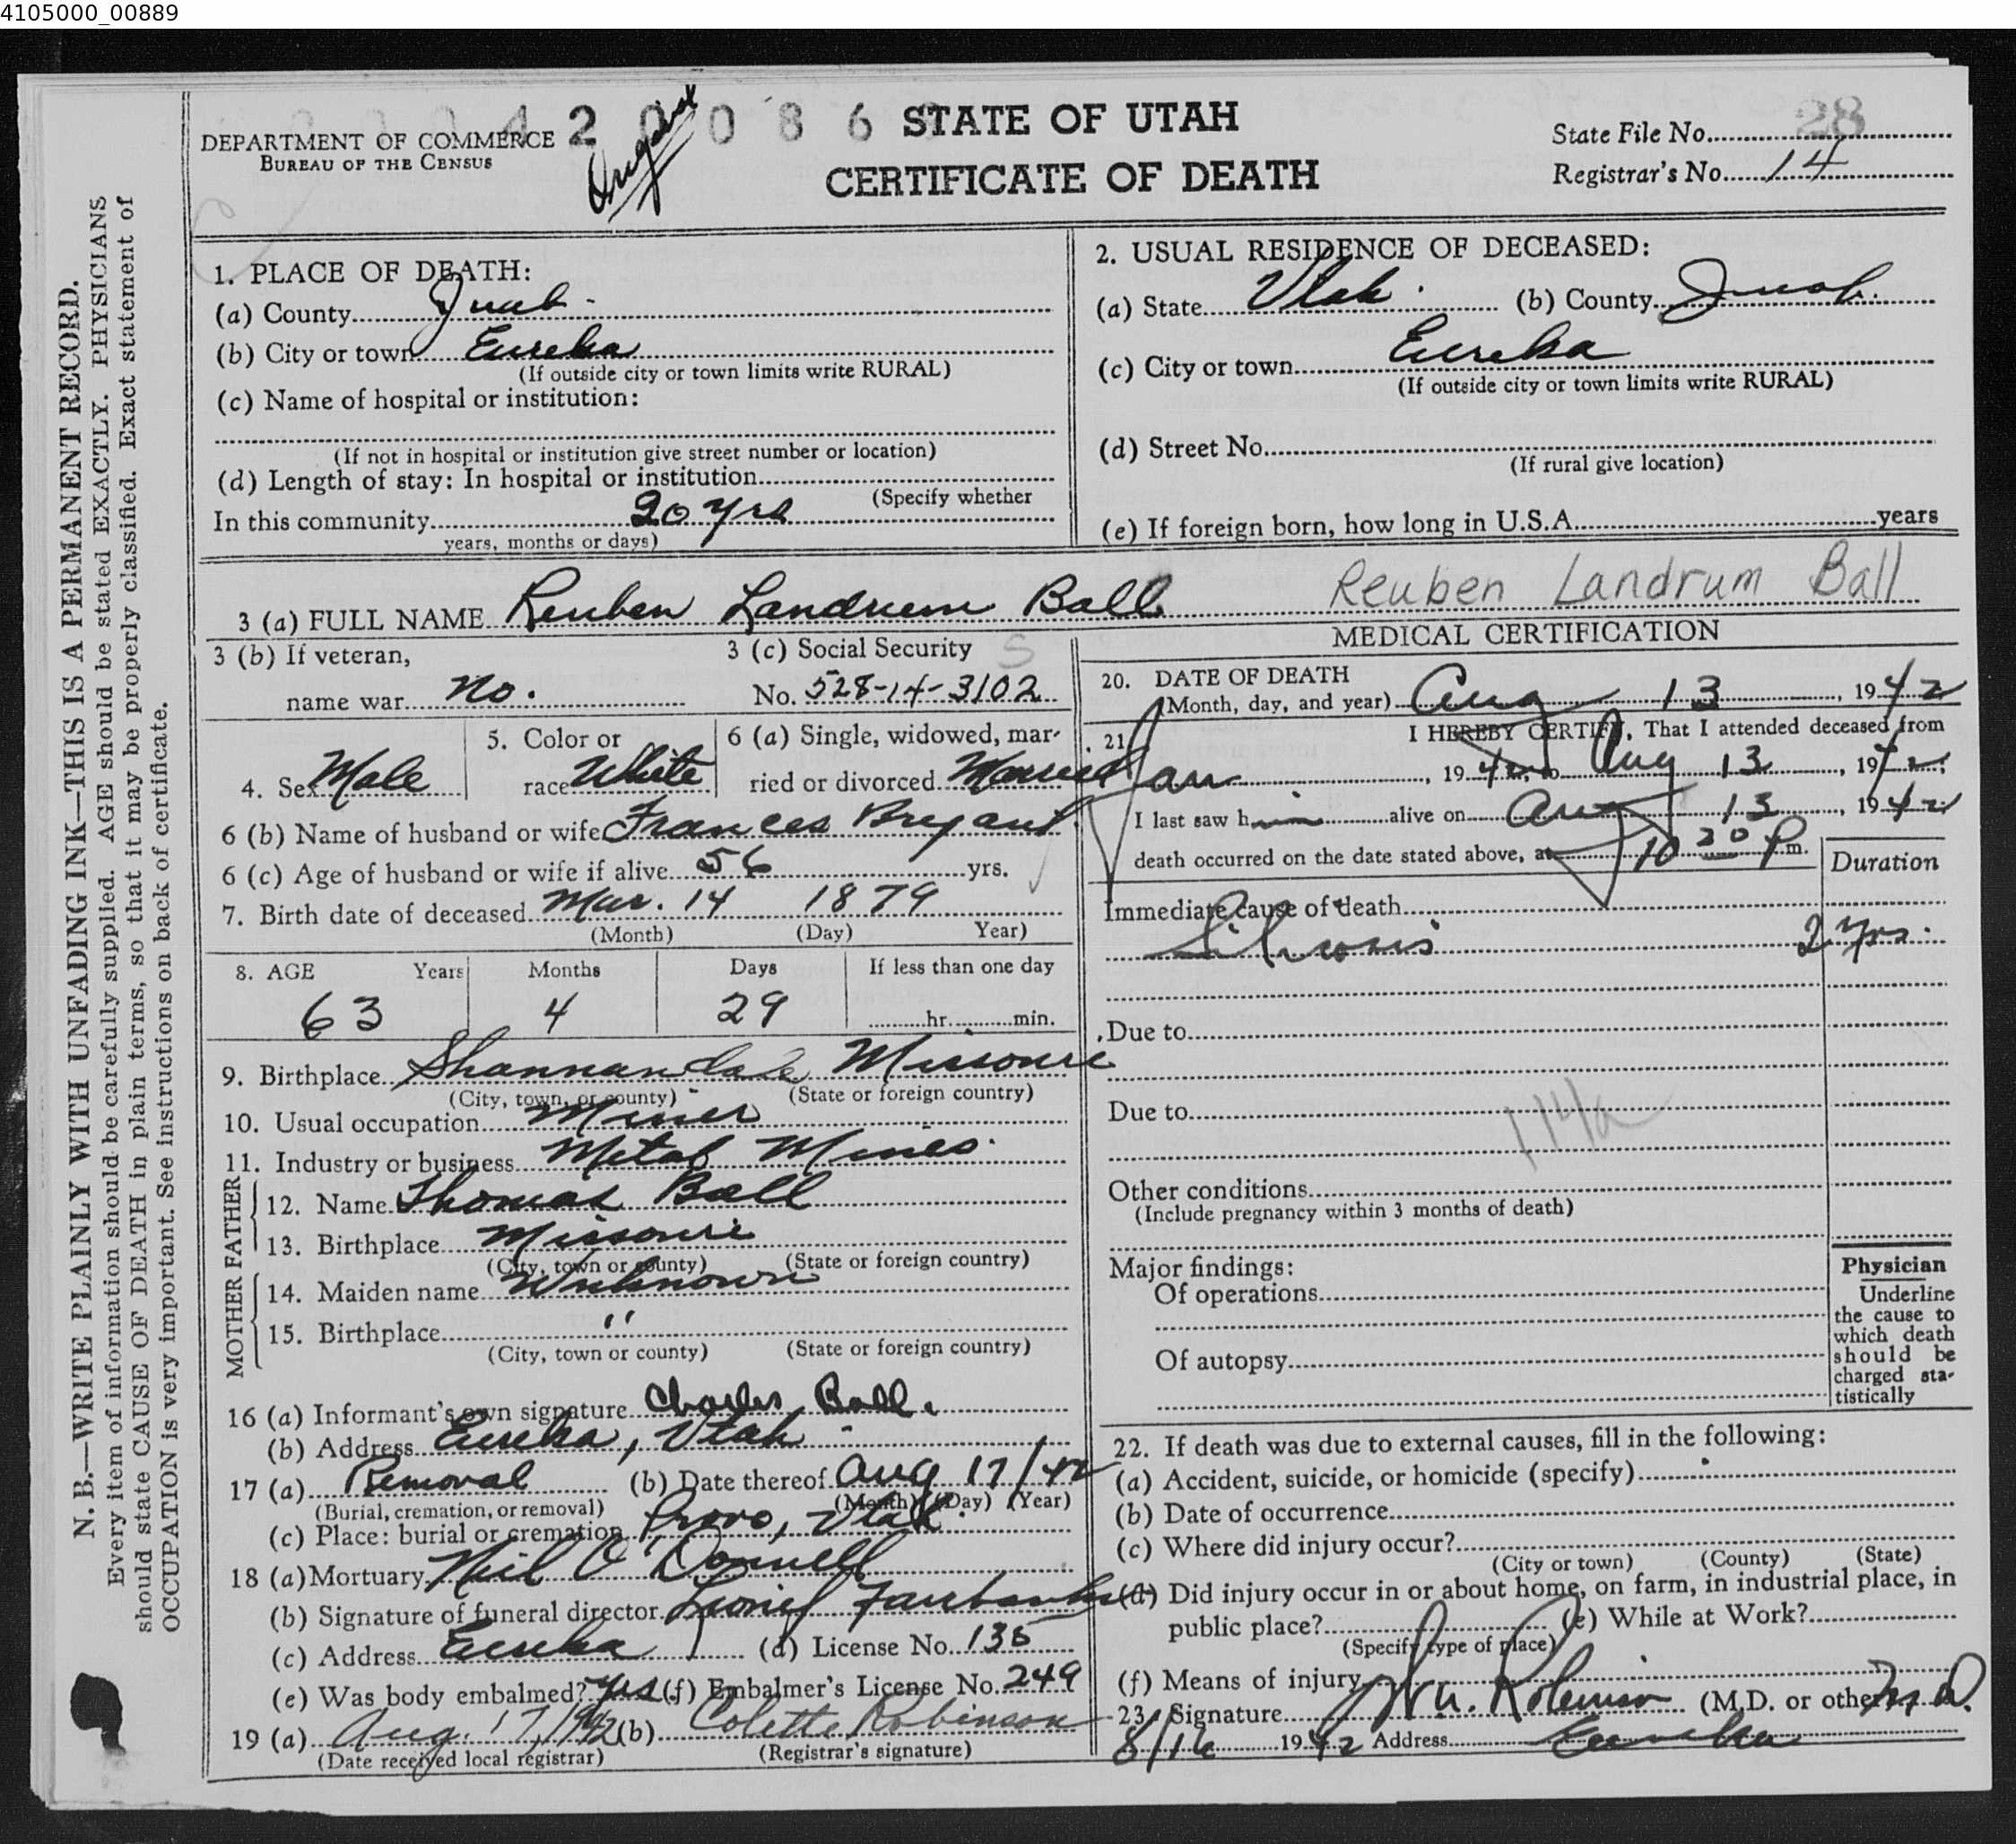 4105000_00889
DEPARTMENT OF COMMERCE
BUREAU OF THE CENSUS
4 2 0 0 8 6
Original
STATE OF UTAH
CERTIFICATE OF DEATH
State File No. 28
Registrar's No. 14
N. B.—WRITE PLAINLY WITH UNFADING INK—THIS IS A PERMANENT RECORD.
Every item of information should be carefully supplied. AGE should be stated EXACTLY. PHYSICIANS
should state CAUSE OF DEATH in plain terms, so that it may be properly classified. Exact statement of
OCCUPATION is very important. See instructions on back of certificate.
1. PLACE OF DEATH:
(a) County Juab
(b) City or town Eureka
(If outside city or town limits write RURAL)
(c) Name of hospital or institution:
(If not in hospital or institution give street number or location)
(d) Length of stay: In hospital or institution
(Specify whether
In this community 20 yrs
years, months or days)
2. USUAL RESIDENCE OF DECEASED:
(a) State Utah (b) County Juab.
(c) City or town Eureka
(If outside city or town limits write RURAL)
(d) Street No.
(If rural give location)
(e) If foreign born, how long in U.S.A. years
3 (a) FULL NAME Reuben Landrum Ball Reuben Landrum Ball
3 (b) If veteran,
name war no.
3 (c) Social Security
No. 528-14-3102
4. Sex Male
5. Color or
race White
6 (a) Single, widowed, mar-
ried or divorced Married
6 (b) Name of husband or wife Frances Bryant
6 (c) Age of husband or wife if alive 56 yrs.
7. Birth date of deceased Mar. 14 1879
(Month) (Day) Year)
8. AGE Years Months Days If less than one day
63 4 29 hr. min.
9. Birthplace Shannandale Missouri
(City, town, or county) (State or foreign country)
10. Usual occupation Miner
11. Industry or business Metal Mines.
FATHER
12. Name Thomas Ball
13. Birthplace Missouri
(City, town or county) (State or foreign country)
MOTHER
14. Maiden name Unknown
15. Birthplace "
(City, town or county) (State or foreign country)
16 (a) Informant's own signature Charles Ball.
(b) Address Eureka, Utah
17 (a) Removal (b) Date thereof Aug 17/42
(Burial, cremation, or removal) (Month) (Day) (Year)
(c) Place: burial or cremation Provo, Utah.
18 (a) Mortuary Neil O'Donnell
(b) Signature of funeral director Lionel Fairbanks
(c) Address Eureka (d) License No. 135
(e) Was body embalmed? Yes (f) Embalmer's License No. 249
19 (a) Aug. 17, 1942 (b) Colette Robinson
(Date received local registrar) (Registrar's signature)
MEDICAL CERTIFICATION
20. DATE OF DEATH
(Month, day, and year) Aug 13, 1942
21. I HEREBY CERTIFY, That I attended deceased from
Jan, 1942, to Aug 13, 1942;
I last saw him alive on Aug 13, 1942
death occurred on the date stated above, at 10 20 P m.
Duration
Immediate cause of death
Silicosis 2 yrs.
Due to
Due to
114a
Other conditions
(Include pregnancy within 3 months of death)
Major findings:
Of operations
Of autopsy
Physician
Underline
the cause to
which death
should be
charged sta-
tistically
22. If death was due to external causes, fill in the following:
(a) Accident, suicide, or homicide (specify)
(b) Date of occurrence
(c) Where did injury occur?
(City or town) (County) (State)
(d) Did injury occur in or about home, on farm, in industrial place, in
public place? (e) While at Work?
(Specify type of place)
(f) Means of injury
23. Signature Wm. Robinson (M.D. or other) M.D.
8/16 1942 Address Eureka